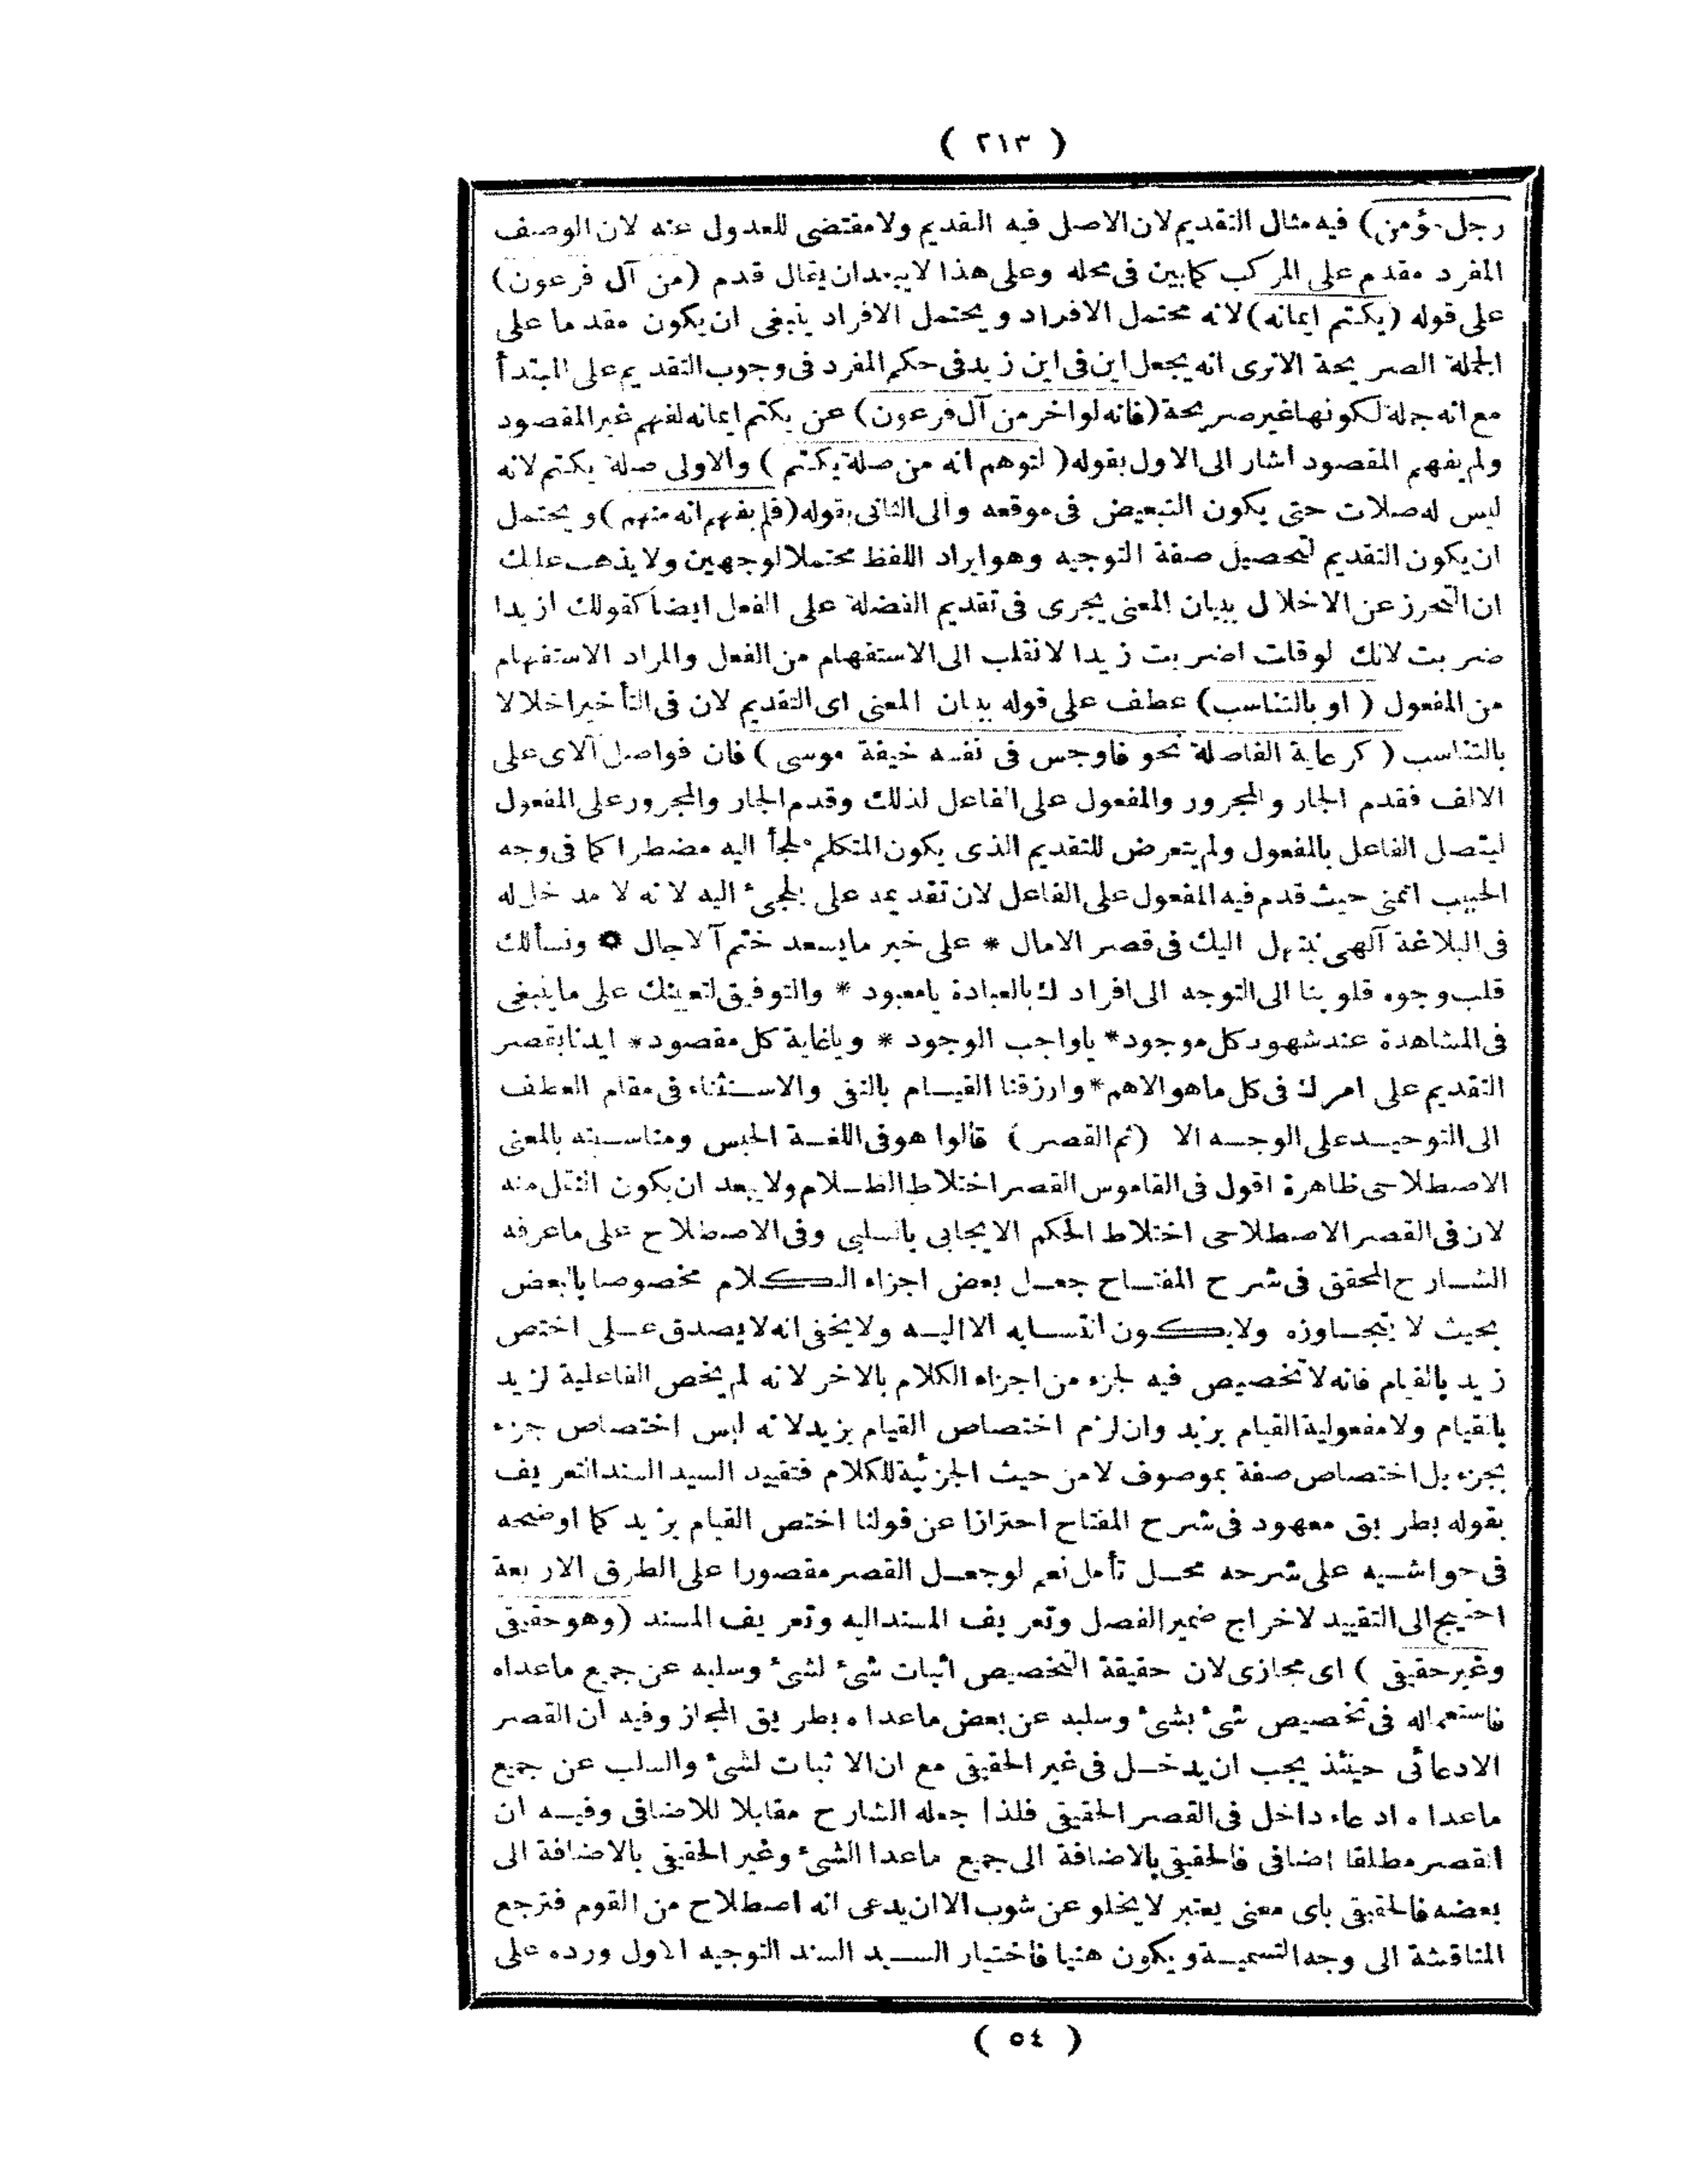 ( ٢١٣ )
رجل مؤمن) فيه مثال التقديم لان الاصل فيه التقديم ولا مقتضى للعدول عنه لان الوصف
المفرد مقدم على المركب كما بين فى محله وعلى هذا لا يبعد ان يقال قدم (من آل فرعون)
على قوله (يكتم ايمانه) لانه محتمل الافراد ويحتمل الافراد ينبغى ان يكون مقدما على
الجملة الصريحة الا ترى انه يجعل اين فى اين زيد فى حكم المفرد فى وجوب التقديم على المبتدأ
مع انه جملة لكونها غير صريحة (فانه لو اخر من آل فرعون) عن يكتم ايمانه لفهم غير المقصود
ولم يفهم المقصود اشار الى الاول بقوله (لتوهم انه من صلة يكتم) والاولى صلة يكتم لانه
ليس له صلات حتى يكون التبعيض فى موقعه والى الثانى بقوله (فلم يفهم انه منهم) ويحتمل
ان يكون التقديم لتحصيل صفة التوجيه وهو ايراد اللفظ محتملا لوجهين ولا يذهب عليك
ان التحرز عن الاخلال ببيان المعنى يجرى فى تقديم الفضلة على الفعل ايضا كقولك ازيدا
ضربت لانك لو قلت اضربت زيدا لانقلب الى الاستفهام من الفعل والمراد الاستفهام
من المفعول (او بالتناسب) عطف على قوله ببيان المعنى اى التقديم لان فى التأخير اخلالا
بالتناسب (كرعاية الفاصلة نحو فاوجس فى نفسه خيفة موسى) فان فواصل الآى على
الالف فقدم الجار والمجرور والمفعول على الفاعل لذلك وقدم الجار والمجرور على المفعول
ليتصل الفاعل بالمفعول ولم يتعرض للتقديم الذى يكون المتكلم ملجأ اليه مضطرا كما فى وجه
الحبيب اتمنى حيث قدم فيه المفعول على الفاعل لان تقديمه على الملجئ اليه لانه لا مدخل له
فى البلاغة آلهى نبتهل اليك فى قصر الامال * على خير ما يسعد ختم آلاجال * ونسألك
قلب وجوه قلوبنا الى التوجه الى افرادك بالعبادة يا معبود * والتوفيق لتعينك على ما ينبغى
فى المشاهدة عند شهود كل موجود * يا واجب الوجود * ويا غاية كل مقصود * ايدنا بقصر
التقديم على امرك فى كل ما هو الاهم * وارزقنا القيام بالنفى والاستثناء فى مقام العطف
الى التوحيد على الوجه الا (ثم القصر) قالوا هو فى اللغة الحبس ومناسبته بالمعنى
الاصطلاحى ظاهرة اقول فى القاموس القصر اختلاط الظلام ولا يبعد ان يكون النقل منه
لان فى القصر الاصطلاحى اختلاط الحكم الايجابى بالسلبى وفى الاصطلاح على ما عرفه
الشارح المحقق فى شرح المفتاح جعل بعض اجزاء الكلام مخصوصا بالبعض
بحيث لا يتجاوزه ولا يكون انتسابه الا اليه ولا يخفى انه لا يصدق على اختص
زيد بالقيام فانه لا تخصيص فيه لجزء من اجزاء الكلام بالاخر لانه لم يخص الفاعلية لزيد
بالقيام ولا مفعولية القيام بزيد وان لزم اختصاص القيام بزيد لانه ليس اختصاص جزء
بجزء بل اختصاص صفة بموصوف لا من حيث الجزئية للكلام فتقييد السيد السند التعريف
بقوله بطريق معهود فى شرح المفتاح احترازا عن قولنا اختص القيام بزيد كما اوضحه
فى حواشيه على شرحه محل تأمل نعم لو جعل القصر مقصورا على الطرق الاربعة
احتيج الى التقييد لاخراج ضمير الفصل وتعريف المسند اليه وتعريف المسند (وهو حقيقى
وغير حقيقى) اى مجازى لان حقيقة التخصيص اثبات شئ لشئ وسلبه عن جميع ماعداه
فاستعماله فى تخصيص شئ بشئ وسلبه عن بعض ماعداه بطريق المجاز وفيه ان القصر
الادعائى حينئذ يجب ان يدخل فى غير الحقيقى مع ان الاثبات لشئ والسلب عن جميع
ماعداه ادعاء داخل فى القصر الحقيقى فلذا جعله الشارح مقابلا للاضافى وفيه ان
القصر مطلقا اضافى فالحقيقى بالاضافة الى جميع ماعدا الشئ وغير الحقيقى بالاضافة الى
بعضه فالحقيقى باى معنى يعتبر لا يخلو عن شوب الا ان يدعى انه اصطلاح من القوم فترجع
المناقشة الى وجه التسمية ويكون هنيا فاختيار السيد السند التوجيه الاول ورده على
( ٥٤ )